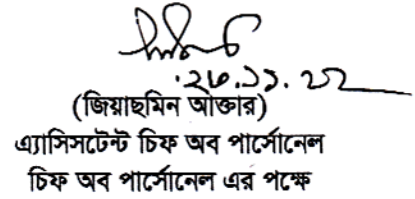 ২৩.১১.২২
(জিয়াছমিন আক্তার)
এ্যাসিসটেন্ট চিফ অব পার্সোনেল
চিফ অব পার্সোনেল এর পক্ষে